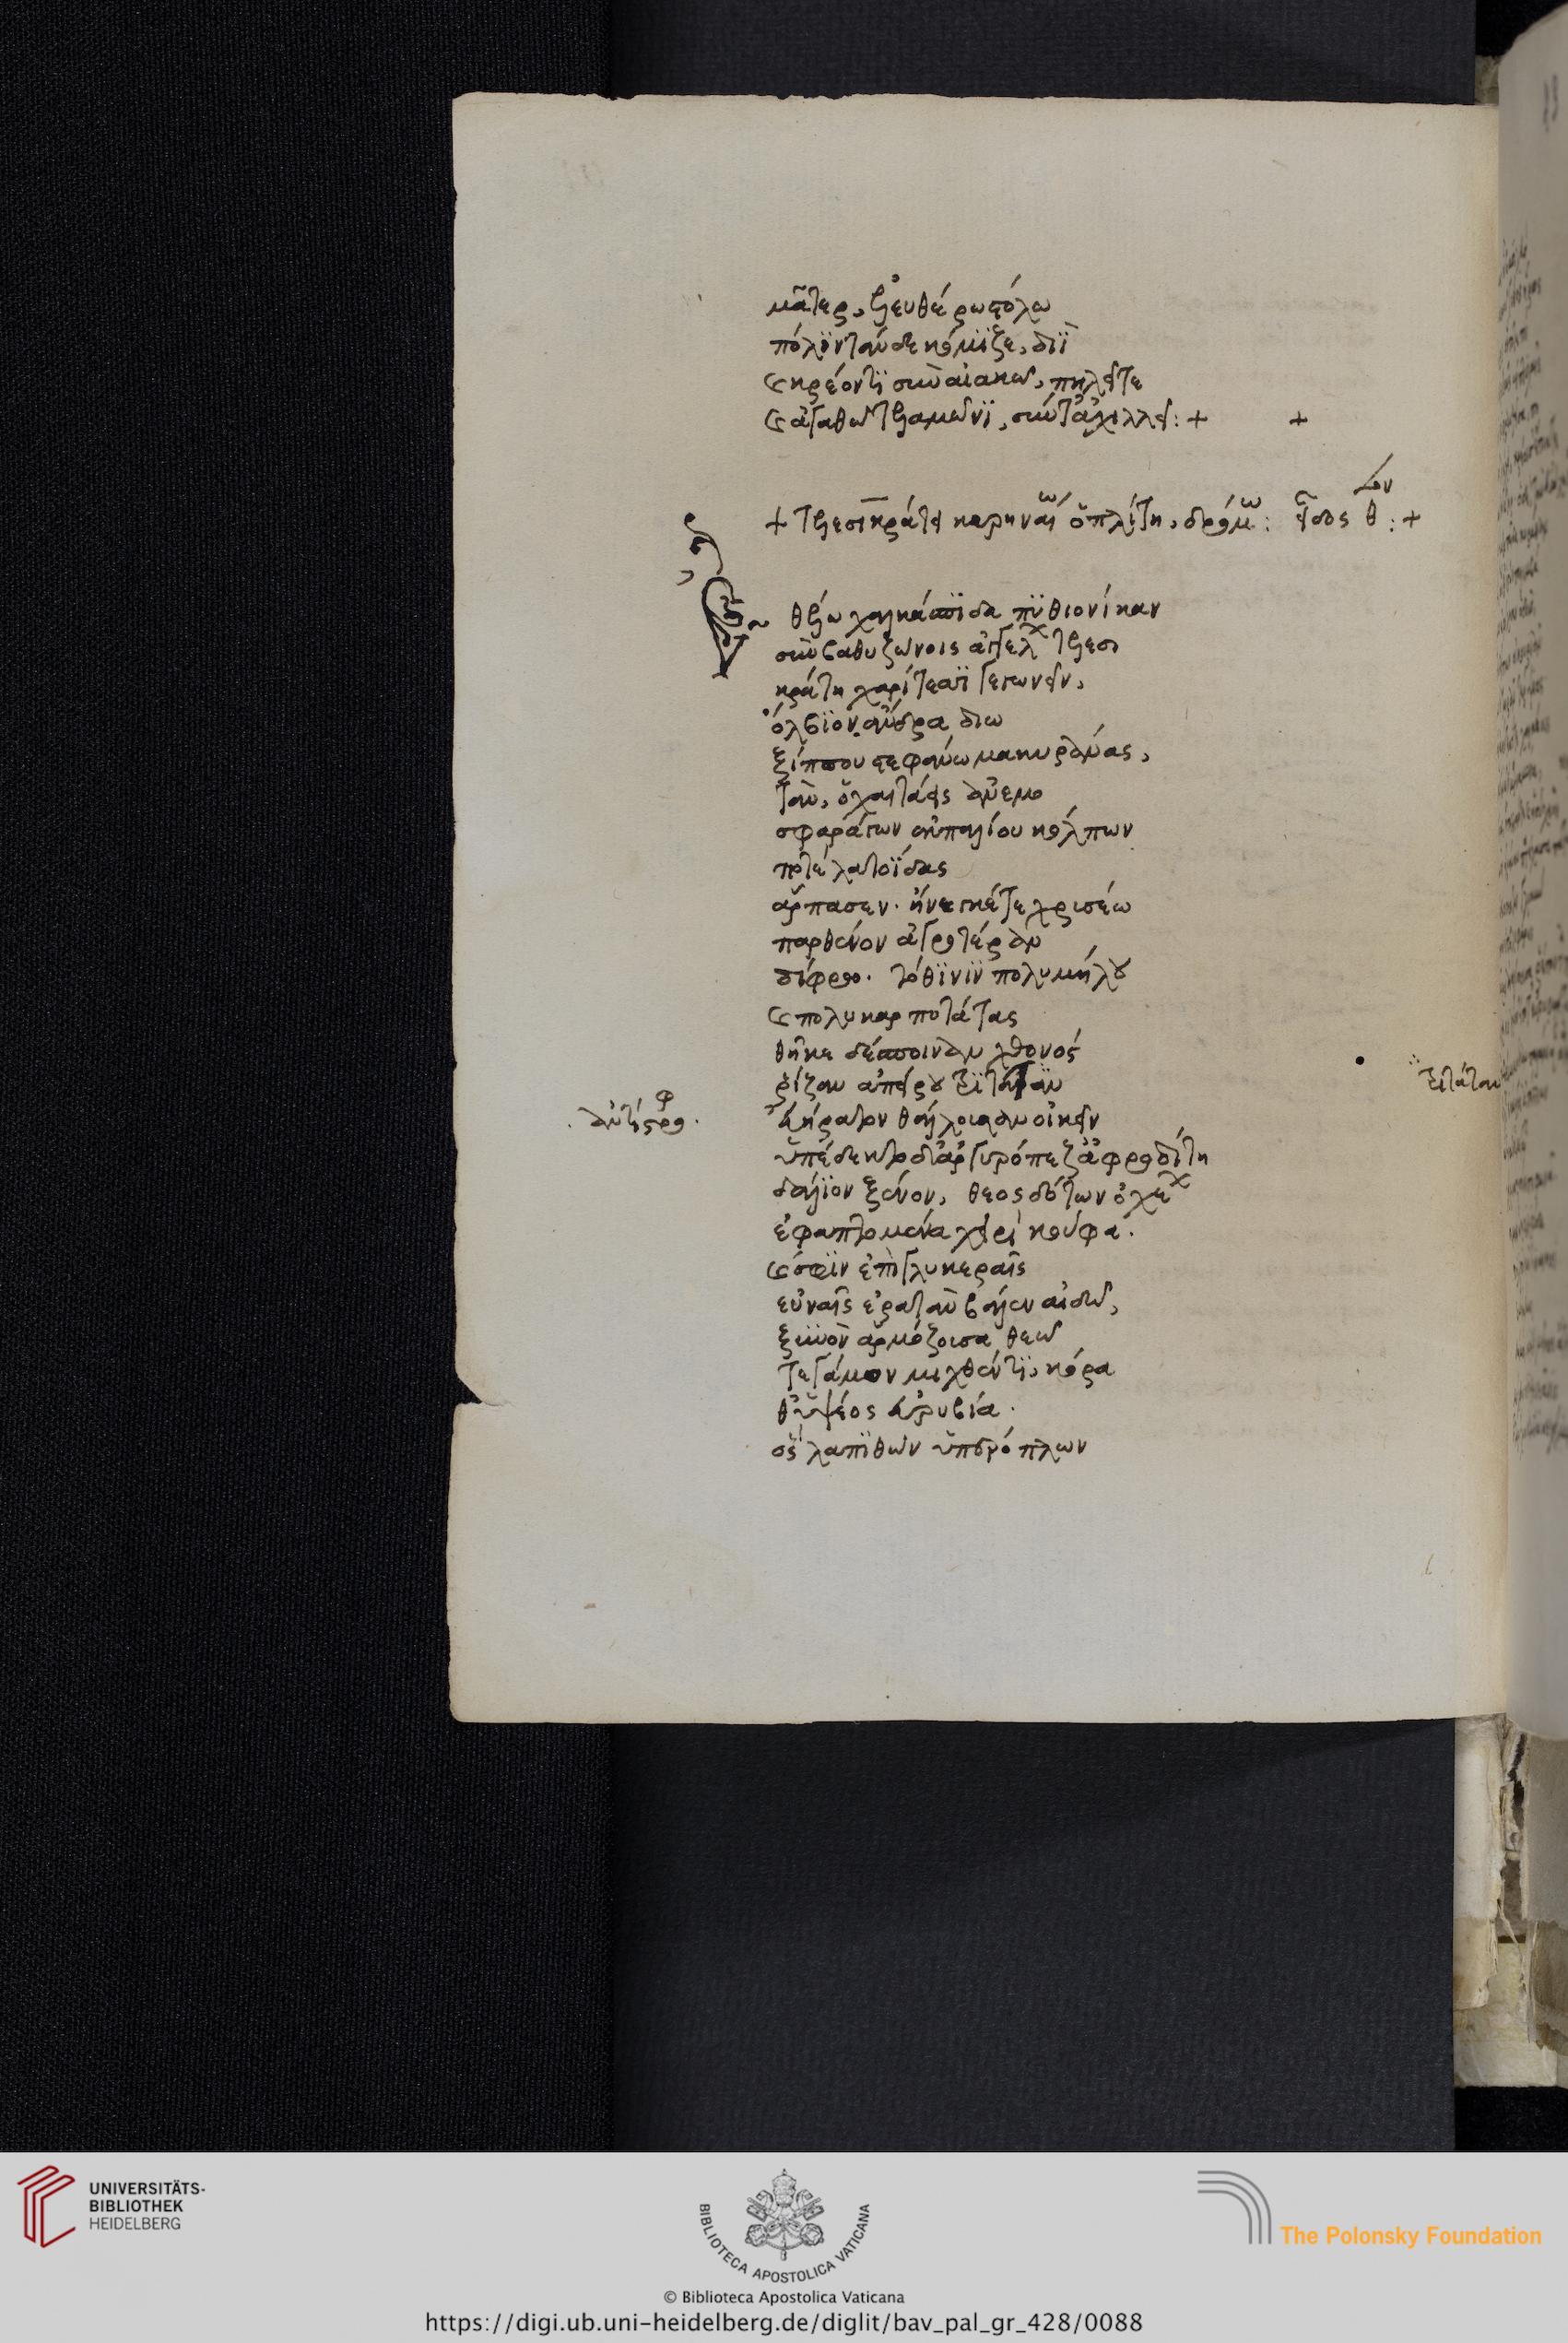 μᾶτερ, ἐλευθέρω στόλω
πόλιν τάνδε κόμιζε, διῒ
καὶ κρέοντι σὺν αἰακῶ, πηλεῖτε
καὶ ἀγαθῶ τελαμῶνι, σύν τ' ἀχιλλεῖ: + +
+ τελεσικράτει κυρηναίω ὁπλίτη, δρόμω: εἶδος θ: +
Ἐθέλω χαλκάσπιδα πυθιονίκαν
σὺν βαθυζώνοις ἀγγέλ τελεσι
κράτη χαρίτεσσι γεγωνεῖν,
ὄλβιον ἄνδρα διω
ξίππου στεφάνωμα κυράνας,
τὰν, ὁ χαιτάεις ἀνεμο
σφαράγων ἐκ παλίου κόλπων
ποτὲ λατοΐδας
ἅρπασεν. ἤνεγκέ τε χρυσέω
παρθένον ἀγροτέραν
δίφρω. τόθι νιν πολυμήλου
καὶ πολυκαρποτάτας
θῆκε δέσποιναν χθονός
ῥίζαν ἀπείρου τρίταν
τριτάταν
ἀντίστρο φ
εὐήρατον θάλλοισαν οἰκεῖν
ὑπέδεκτο δ' ἀργυρόπεζ' ἀφροδίτη
δάλιον ξένον, θεοσδότων ὀχέ
ἐφαπτομένα χειρὶ κούφα.
καὶ σφιν ἐπὶ γλυκεραῖς
εὐναῖς ἐρατὰν βάλεν αἰδῶ,
ξυνὸν ἁρμόζοισα θεῶ
τε γάμον μιχθέντι, κόρα
θ' ὑψέος εὐρυβία.
ὃς λαπιθῶν ὑπερόπλων
UNIVERSITÄTS-
BIBLIOTHEK
HEIDELBERG
BIBLIOTECA APOSTOLICA VATICANA
The Polonsky Foundation
© Biblioteca Apostolica Vaticana
https://digi.ub.uni-heidelberg.de/diglit/bav_pal_gr_428/0088